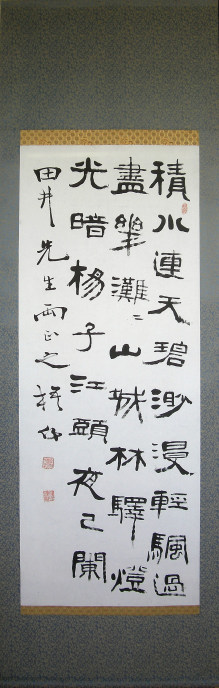 積水連天碧渺漫輕颿過
盡幾灘〻山城林驛燈
光暗楊子江頭夜已闌
田井先生兩正之